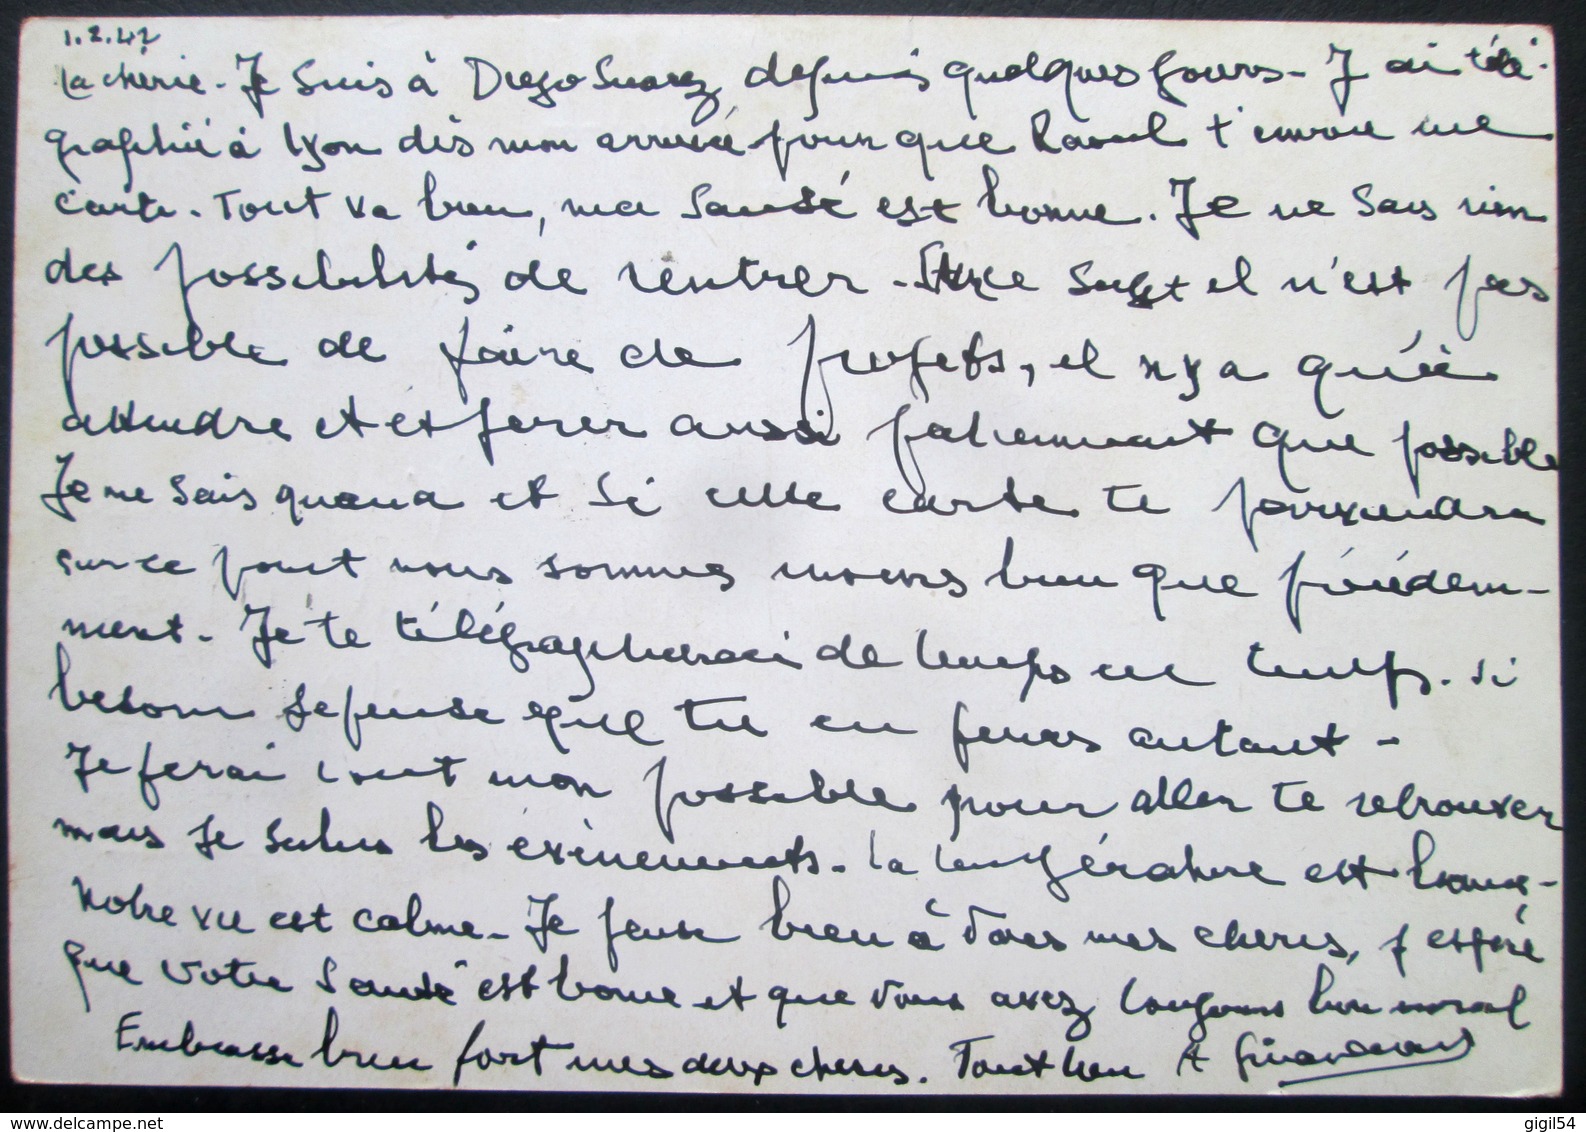 1.2.42
La chérie. Je suis à Diego Suarez depuis quelques jours. J'ai télé-
graphié à Lyon dès mon arrivée pour que Raoul t'envoie une
carte. Tout va bien, ma santé est bonne. Je ne sais rien
des possibilités de rentrer. ce sujet il n'est pas
possible de faire de projets, il n'y a qu'à
attendre et espérer aussi patiemment que possible
Je ne sais quand et si cette carte te parviendra
sur ce point nous sommes moins bien que précédem-
ment. Je te télégraphierai de temps en temps. Si
besoin je pense que tu en feras autant -
Je ferai tout mon possible pour aller te retrouver
mais je subis les évènements. La température est bonne -
Notre vie est calme. Je pense bien à vous mes chères, j'espère
que votre santé est bonne et que vous avez toujours bon moral
Embrasse bien fort mes deux chères. Tout bien A
www.delcampe.net
gigil54